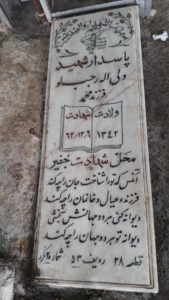 پاسدار شهید
ولی اله رجبلو
فرزند محمد
ولادت شهادت
۱۳۴۲ ۶۲/۱۲/۶
محل شهادت جفیر
آنکس که تو را شناخت جان را چه کند
فرزند و عیال و خانمان را چه کند
دیوانه کنی هر دو جهانش بخشی
دیوانه تو هر دو جهان را چه کند
قطعه ۲۸ ردیف ۵۳ شماره